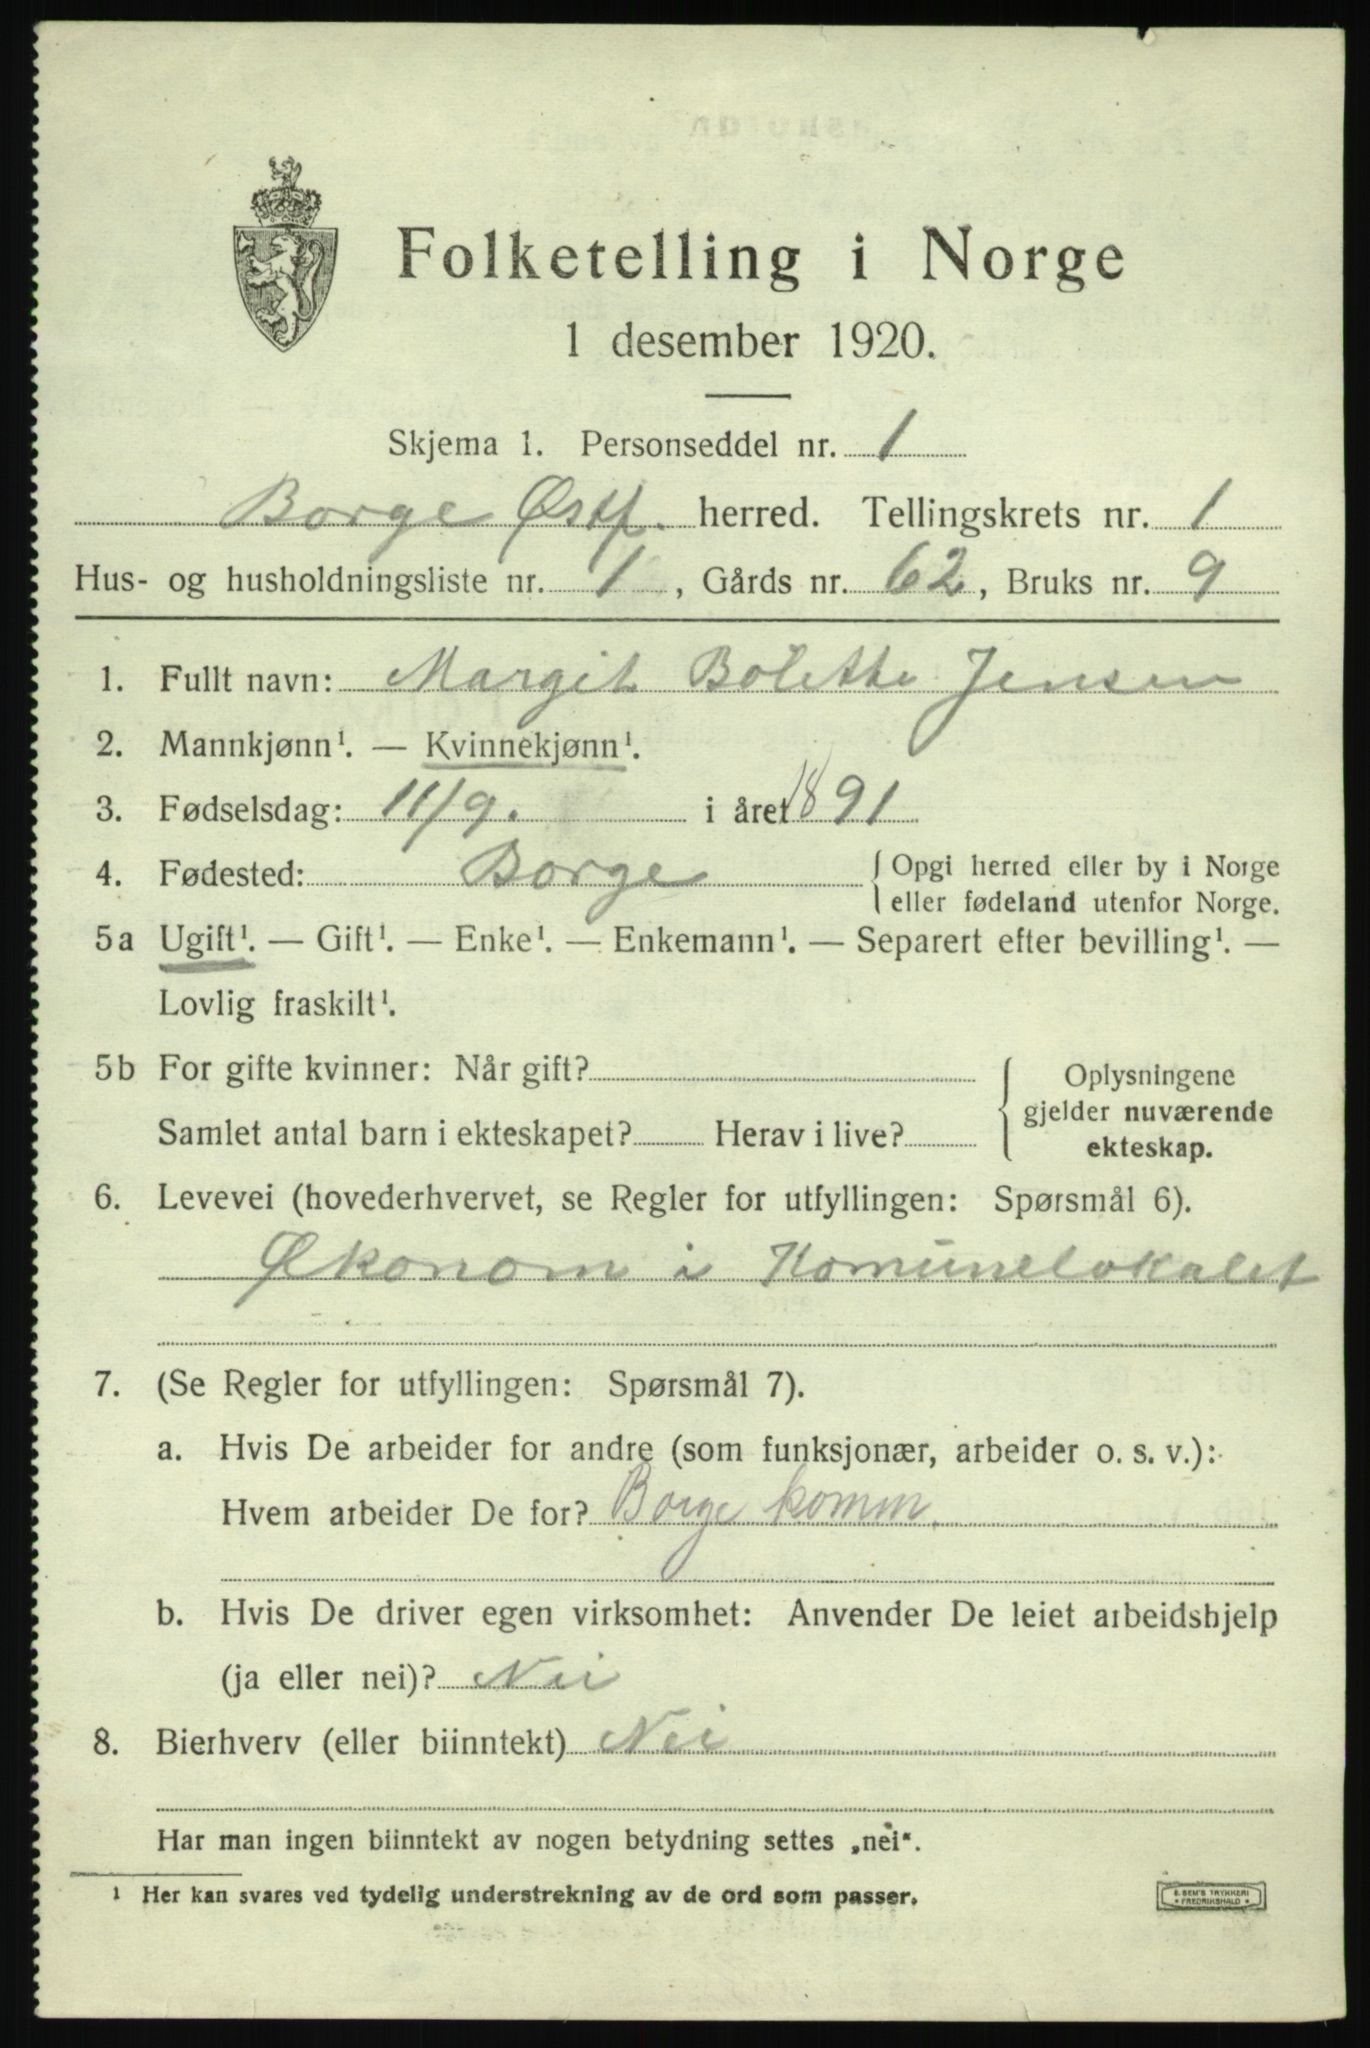 Folketelling i Norge
1 desember 1920.
Skjema 1. Personseddel nr. 1
Borge Østf. herred. Tellingskrets nr. 1
Hus- og husholdningsliste nr. 1, Gårds nr. 62, Bruks nr. 9
1. Fullt navn: Margit Bolette Jensen
2. Mannkjønn¹. — Kvinnekjønn¹.
3. Fødselsdag: 11/9. i året 1891
4. Fødested: Borge { Opgi herred eller by i Norge
eller fødeland utenfor Norge.
5a Ugift¹. — Gift¹. — Enke¹. — Enkemann¹. — Separert efter bevilling¹. —
Lovlig fraskilt¹.
5b For gifte kvinner: Når gift?
Samlet antal barn i ekteskapet? Herav i live?
Oplysningene
gjelder nuværende
ekteskap.
6. Levevei (hovederhvervet, se Regler for utfyllingen: Spørsmål 6).
Økonom i Komunelokalet
7. (Se Regler for utfyllingen: Spørsmål 7).
a. Hvis De arbeider for andre (som funksjonær, arbeider o. s. v.):
Hvem arbeider De for? Borge komm.
b. Hvis De driver egen virksomhet: Anvender De leiet arbeidshjelp
(ja eller nei)? Nei
8. Bierhverv (eller biinntekt) Nei
Har man ingen biinntekt av nogen betydning settes „nei".
¹ Her kan svares ved tydelig understrekning av de ord som passer.
E. SEM'S TRYKKERI
FREDRIKSHALD